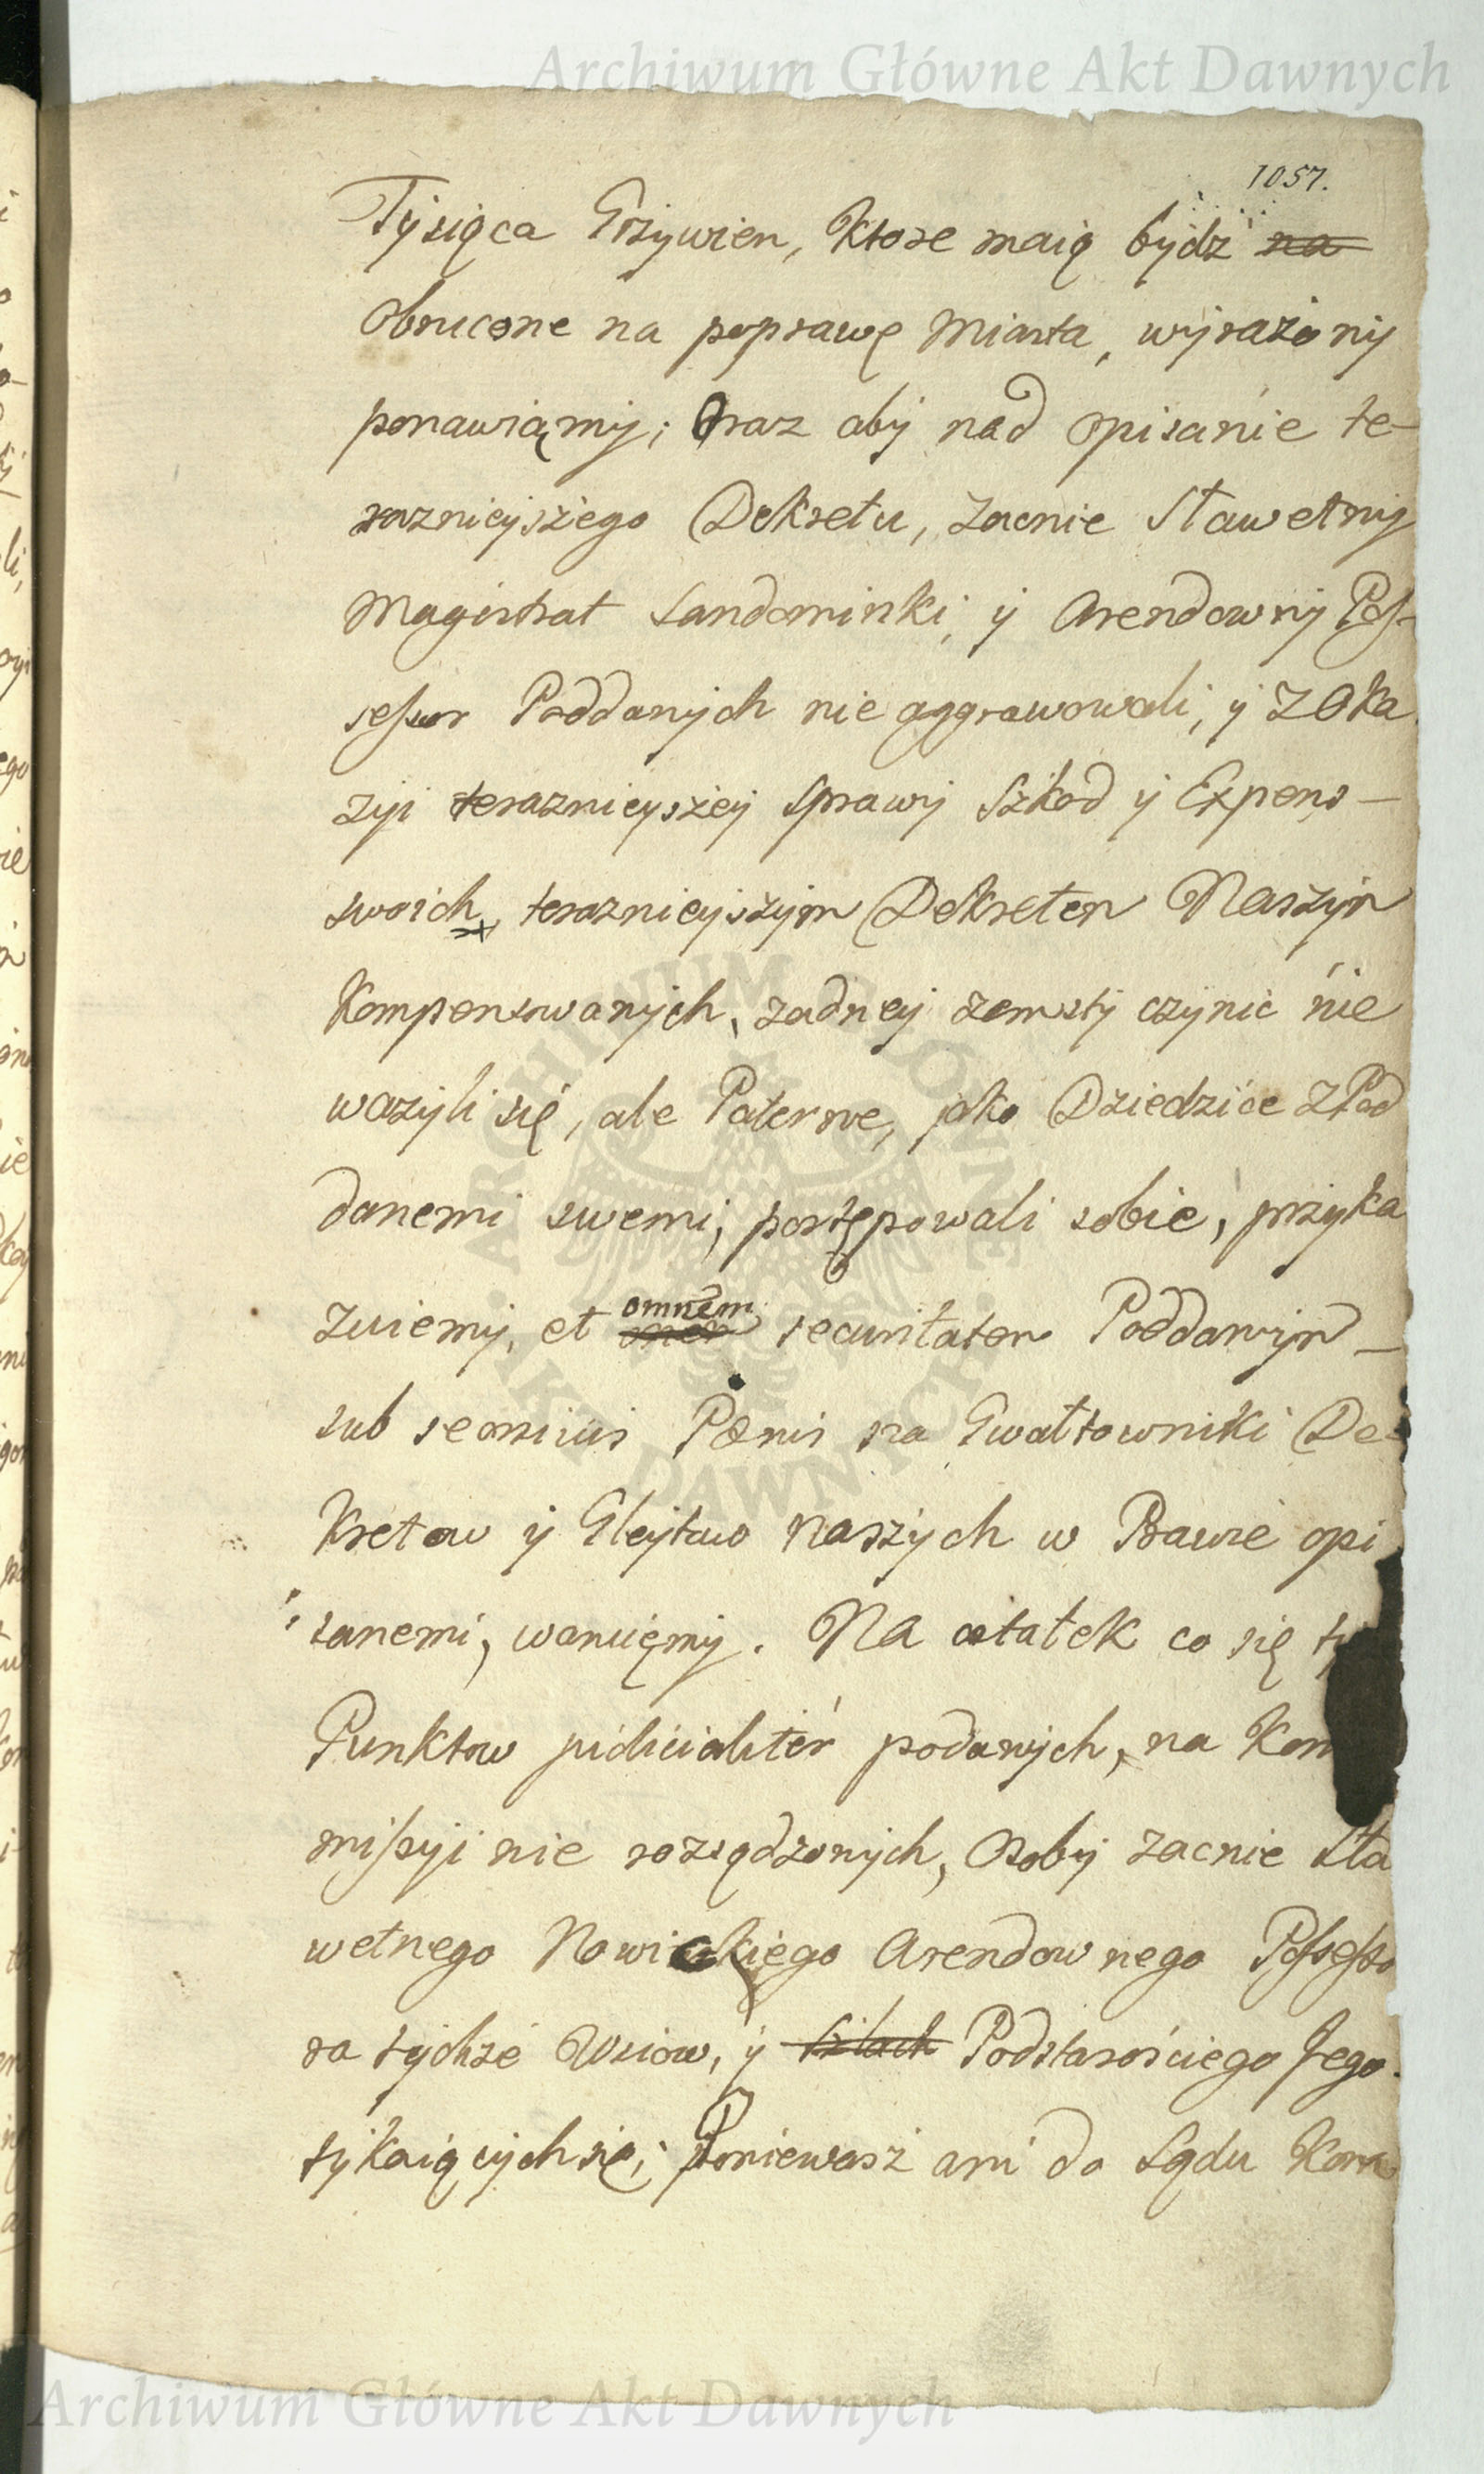 Archiwum Główne Akt Dawnych
1057.
Tysiąca Grzywien, Ktore maią bydz na
obrucone na poprawę Miasta, wyrażony
ponawiamy; Oraz aby nad opisanie te-
raznieyszego Dekretu, zacnie Sławetny
Magistrat Sandomirski, y Arendowny Pos-
sessor Poddanych nie aggrawowali, y z Oka
zyi teraznieyszey Sprawy Szkod y Expens –
swoich, teraznieyszym Dekretem Naszym
Kompensowanych, zadney zemsty czynic nie
wazyli się, ale Paterne, jako Dziedzice z Pod
danemi swemi, postępowali sobie, przyka
zuiemy, et omnem securitatem Poddanym –
sub Paenis na Gwałtowniki De-
kretow y Gleytow naszych w Prawie opi
sanemi, waruięmy. Na ostatek co się
Punktow judicialiter podanych, na Kom
missyi nie rozsądzonych, Osoby zacnie Sła
wetnego Nowickiego Arendownego Possesso
ra tychże Wsiow, y Podstarościego Jego
tykaiących się; Ponieważ ani do Sądu Kom
ARCHIWUM GŁÓWNE AKT DAWNYCH
Archiwum Główne Akt Dawnych